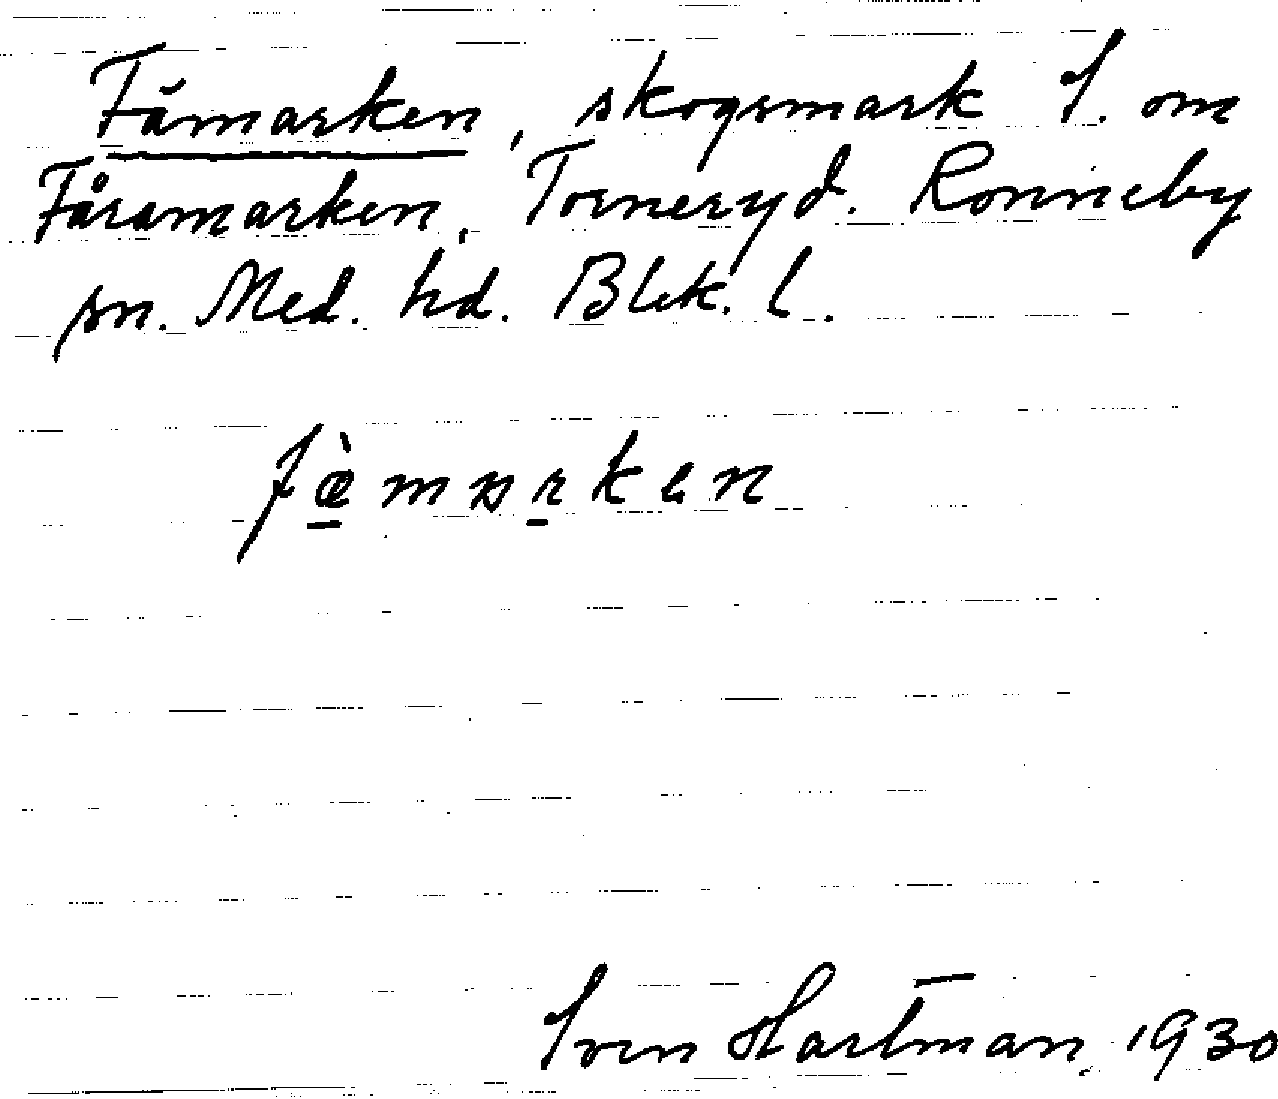 Fämarken, skogsmark S. om
Fåramarken, Torneryd. Ronneby
sn. Med. hd. Blek. l.
fæ̠̀mɒr̠ken
Sven Hartman, 1930